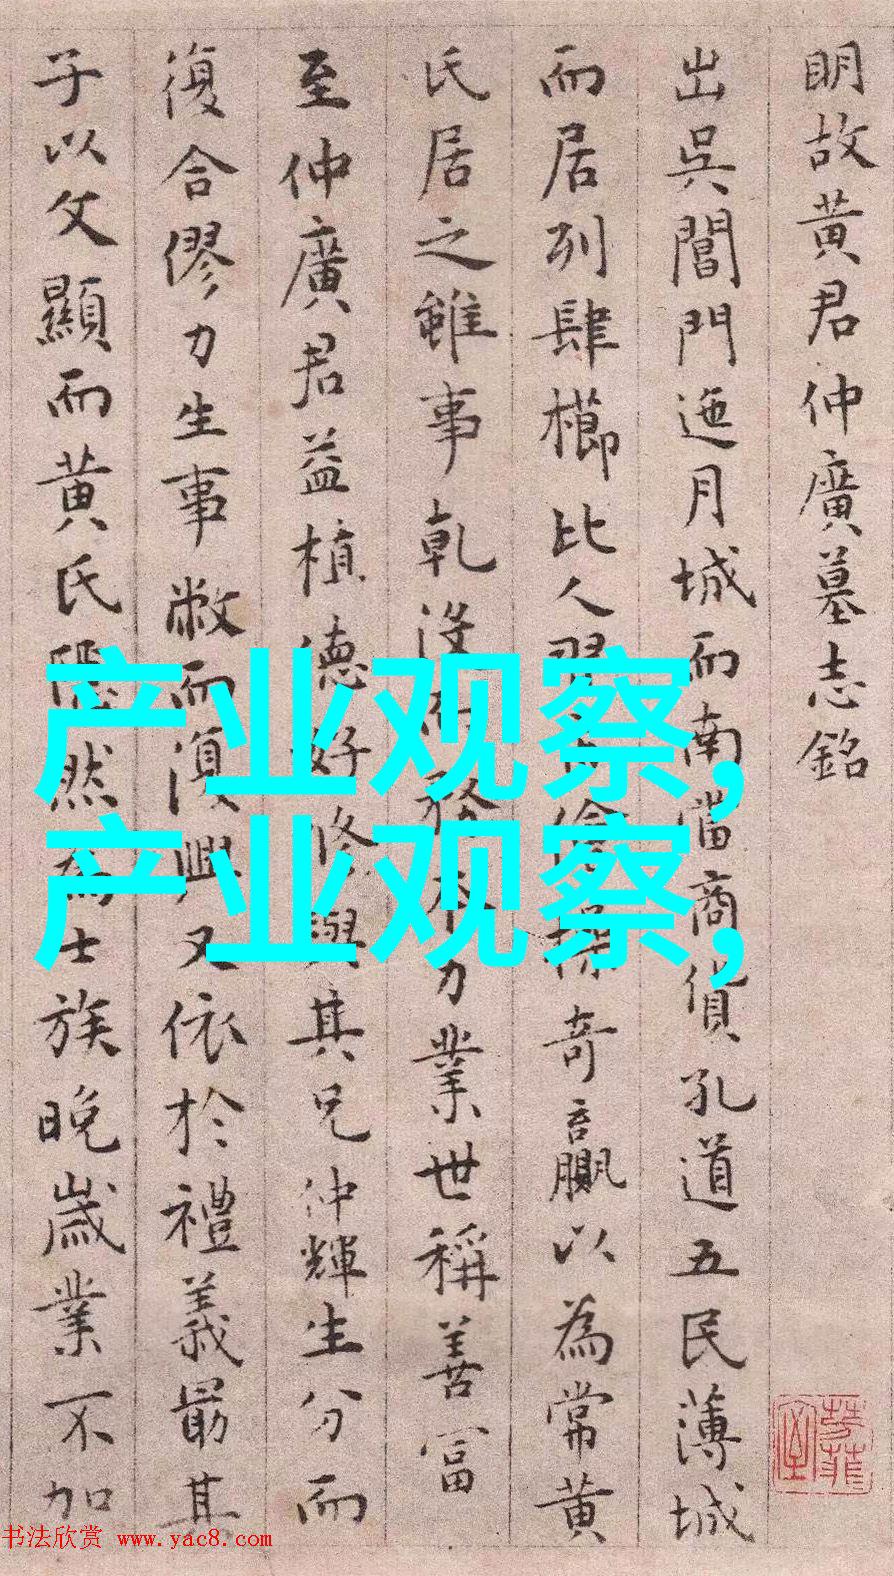 明故黄君仲廣墓志銘
出吳閶門迤月城而南當商貨孔道五民薄城
而居列肆櫛比人習奇羸以為常黄
氏居之雖事乾沒而務本力業世稱善富
至仲廣君益植德好修與其兄仲輝生分而
復合僇力生事敝而復興又依於禮義最其
子以文顯而黄氏隱然為士族晚歲業不加
产业观察,
产业观察,
书法欣赏 www.yac8.com